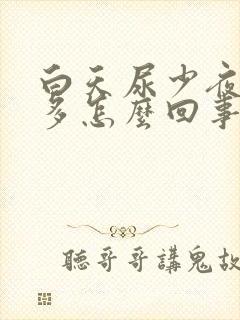 白天尿少夜
多怎麼回事
聽哥哥講鬼故